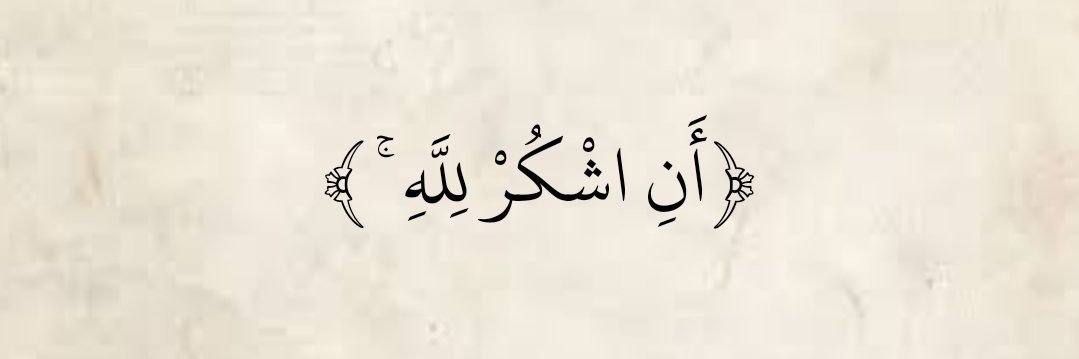 ﴿أَنِ اشْكُرْ لِلَّهِ ۚ﴾